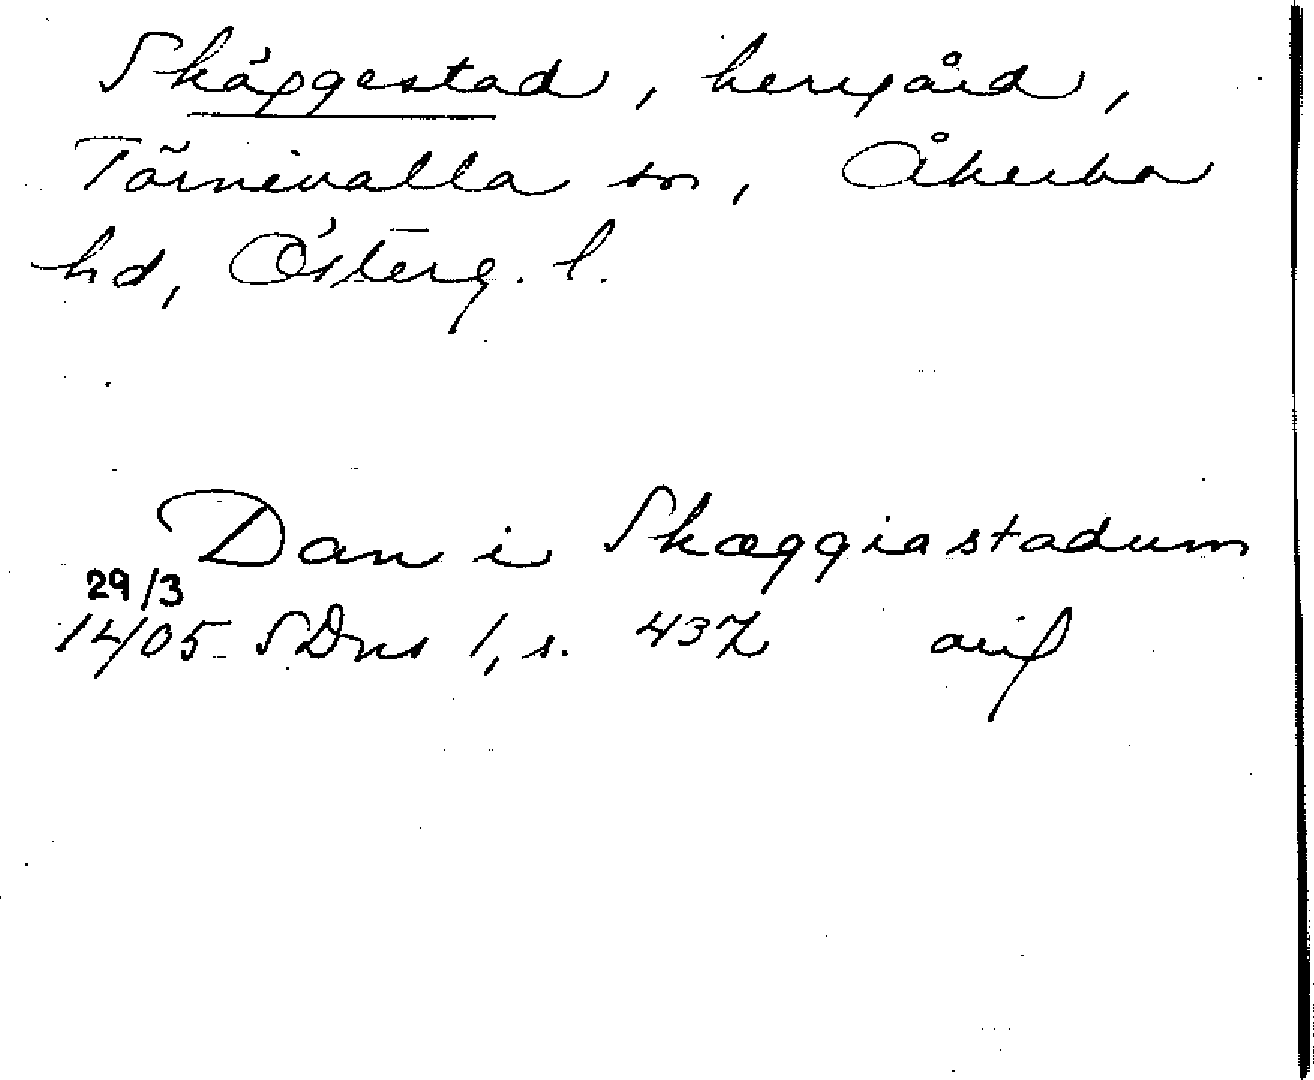 Skäggestad, herrgård,
Törnevalla sn, Åkerbo
hd, Österg. l.
Dan i Skæggiastadum
29/3
1405 SDns 1, s. 437 avif